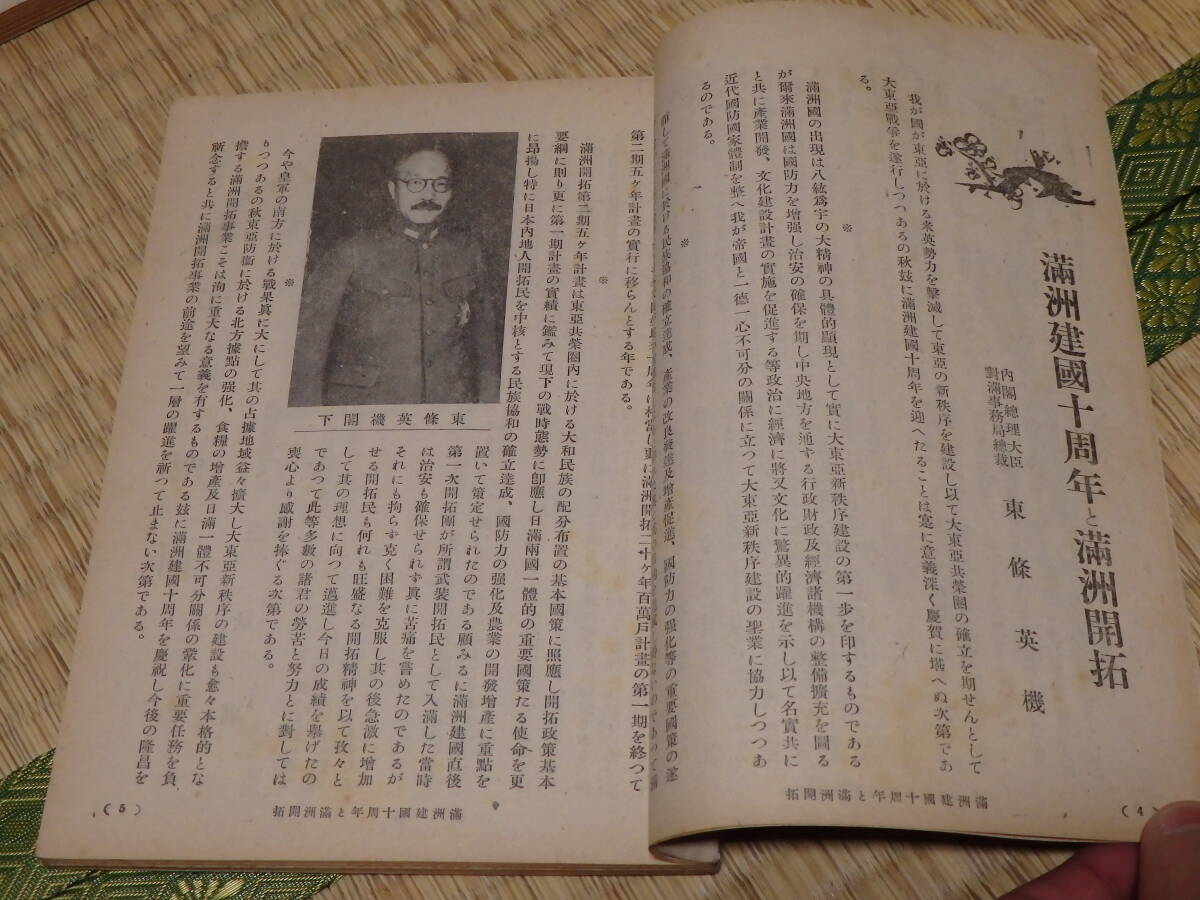 滿洲建國十周年と滿洲開拓
內閣總理大臣
對滿事務局總裁
東條英機
我が國が東亞に於ける米英勢力を擊滅して東亞の新秩序を建設し以て大東亞共榮圈の確立を期せんとして
大東亞戰爭を遂行しつつあるの秋玆に滿洲建國十周年を迎へたることは寔に意義深く慶賀に堪へぬ次第であ
る。
※
滿洲國の出現は八紘爲宇の大精神の具體的顯現として實に大東亞新秩序建設の第一步を印するものである
が爾來滿洲國は國防力を增强し治安の確保を期し中央地方を通ずる行政財政及經濟諸機構の整備擴充を圖る
と共に產業開發、文化建設計畫の實施を促進する等政治に經濟に將又文化に驚異的躍進を示し以て名實共に
近代國防國家體制を整へ我が帝國と一德一心不可分の關係に立つて大東亞新秩序建設の聖業に協力しつつあ
るのである。
※
民族協和の確立達成、產業の改良發達及增產促進、國防力の强化等の重要國策の遂
滿洲建國十周年と滿洲開拓
(4)
第二期五ケ年計畫の實行に移らんとする年である。
※
滿洲開拓第二期五ケ年計畫は東亞共榮圈內に於ける大和民族の配分布置の基本國策に照應し開拓政策基本
要綱に則り更に第一期計畫の實績に鑑みて現下の戰時態勢に卽應し日滿兩國一體的の重要國策たる使命を更
に昻揚し特に日本內地人開拓民を中核とする民族協和の確立達成、國防力の强化及農業の開發增產に重點を
置いて策定せられたのである顧みるに滿洲建國直後
第一次開拓團が所謂武裝開拓民として入滿した當時
は治安も確保せられず眞に苦痛を嘗めたのであるが
それにも拘らず克く困難を克服し其の後急激に增加
せる開拓民も何れも旺盛なる開拓精神を以て孜々と
して其の理想に向つて邁進し今日の成績を擧げたの
であつて此等多數の諸君の勞苦と努力とに對しては
衷心より感謝を捧ぐる次第である。
東條英機閣下
※
今や皇軍の南方に於ける戰果眞に大にして其の占據地域益々擴大し大東亞新秩序の建設も愈々本格的とな
りつつあるの秋東亞防衞に於ける北方據點の强化、食糧の增產及日滿一體不可分關係の鞏化に重要任務を負
擔する滿洲開拓事業こそは洵に重大なる意義を有するものである玆に滿洲建國十周年を慶祝し今後の隆昌を
祈念すると共に滿洲開拓事業の前途を望みて一層の躍進を祈つて止まない次第である。
滿洲建國十周年と滿洲開拓
(5)